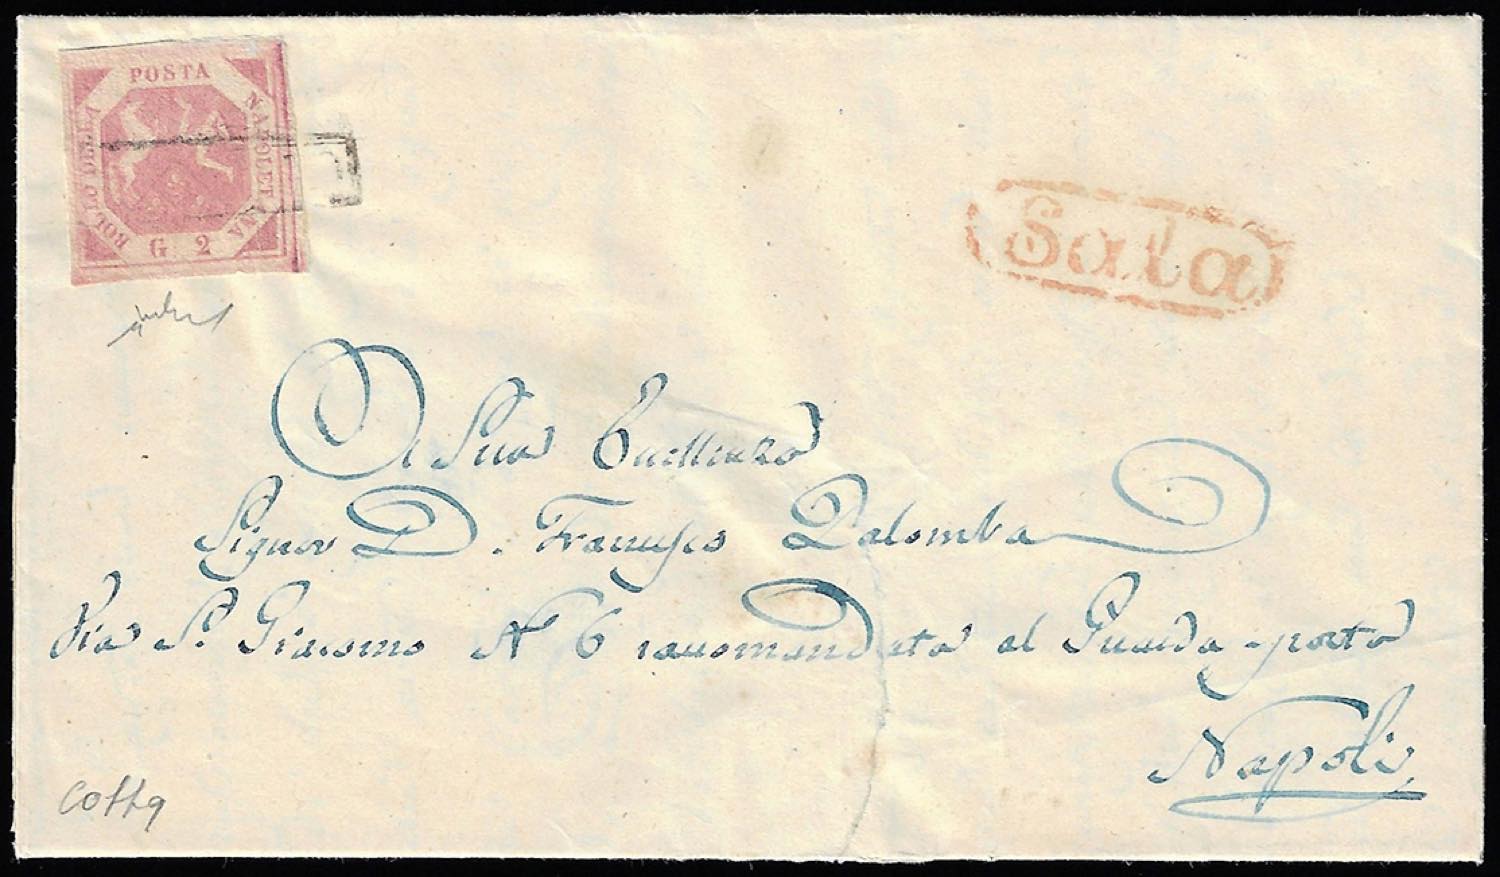 POSTA NAPOLETANA
BOLLO DELLA
G. 2
Sala
A Sua Eccellenza
Signor D. Francesco Palomba
Via S. Giacomo N 6 raccomandata al Guarda-porto
Napoli